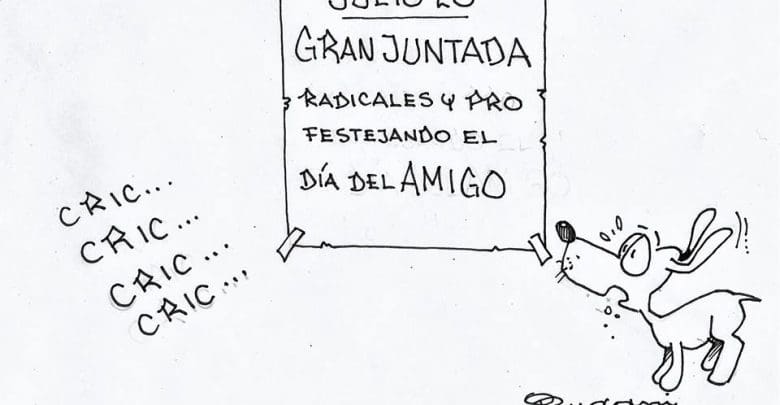 JULIO 20
GRAN JUNTADA
RADICALES Y PRO
FESTEJANDO EL
DÍA DEL AMIGO
CRIC...
CRIC...
CRIC...
CRIC...